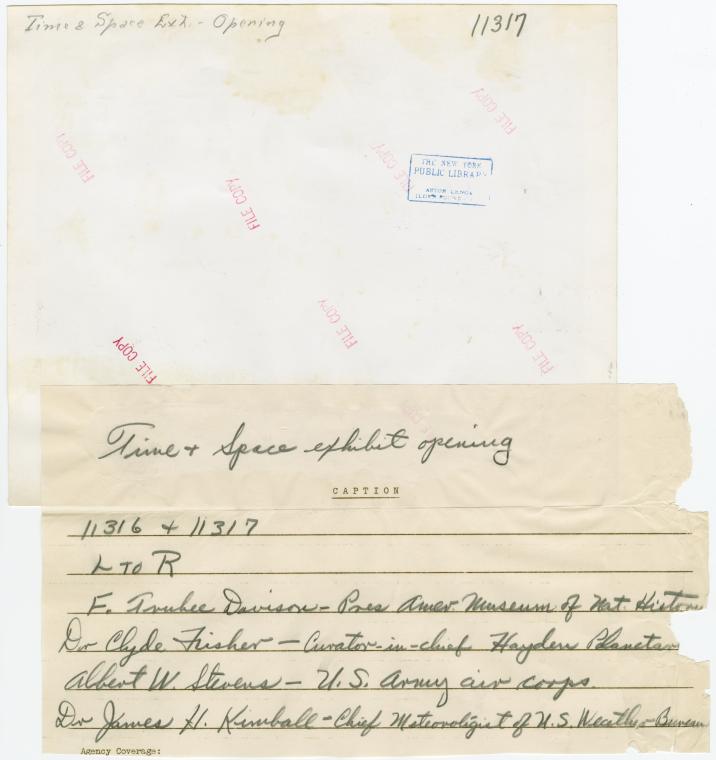 Time & Space Exh. - Opening
11317
FILE COPY
FILE COPY
FILE COPY
FILE COPY
THE NEW YORK
PUBLIC LIBRARY
ASTOR LENOX
FILE COPY
FILE COPY
FILE COPY
Time & Space exhibit opening
CAPTION
11316 & 11317
L TO R
F. Trubee Davison - Pres Amer. Museum of Nat. Histor
Dr Clyde Fisher - Curator-in-chief Hayden Planetar
Albert W. Stevens - U.S. Army air corps.
Dr James H. Kimball - Chief Meteorologist of U.S. Weather Bureau
Agency Coverage: